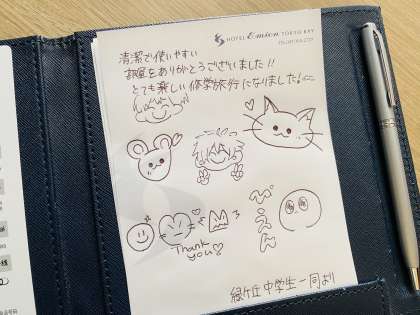 HOTEL Emion TOKYO BAY
清潔で使いやすい
部屋をありがとうございました!!
とても楽しい修学旅行になりました!
ぴえん
Thank
you♡
緑ヶ丘中学生一同より